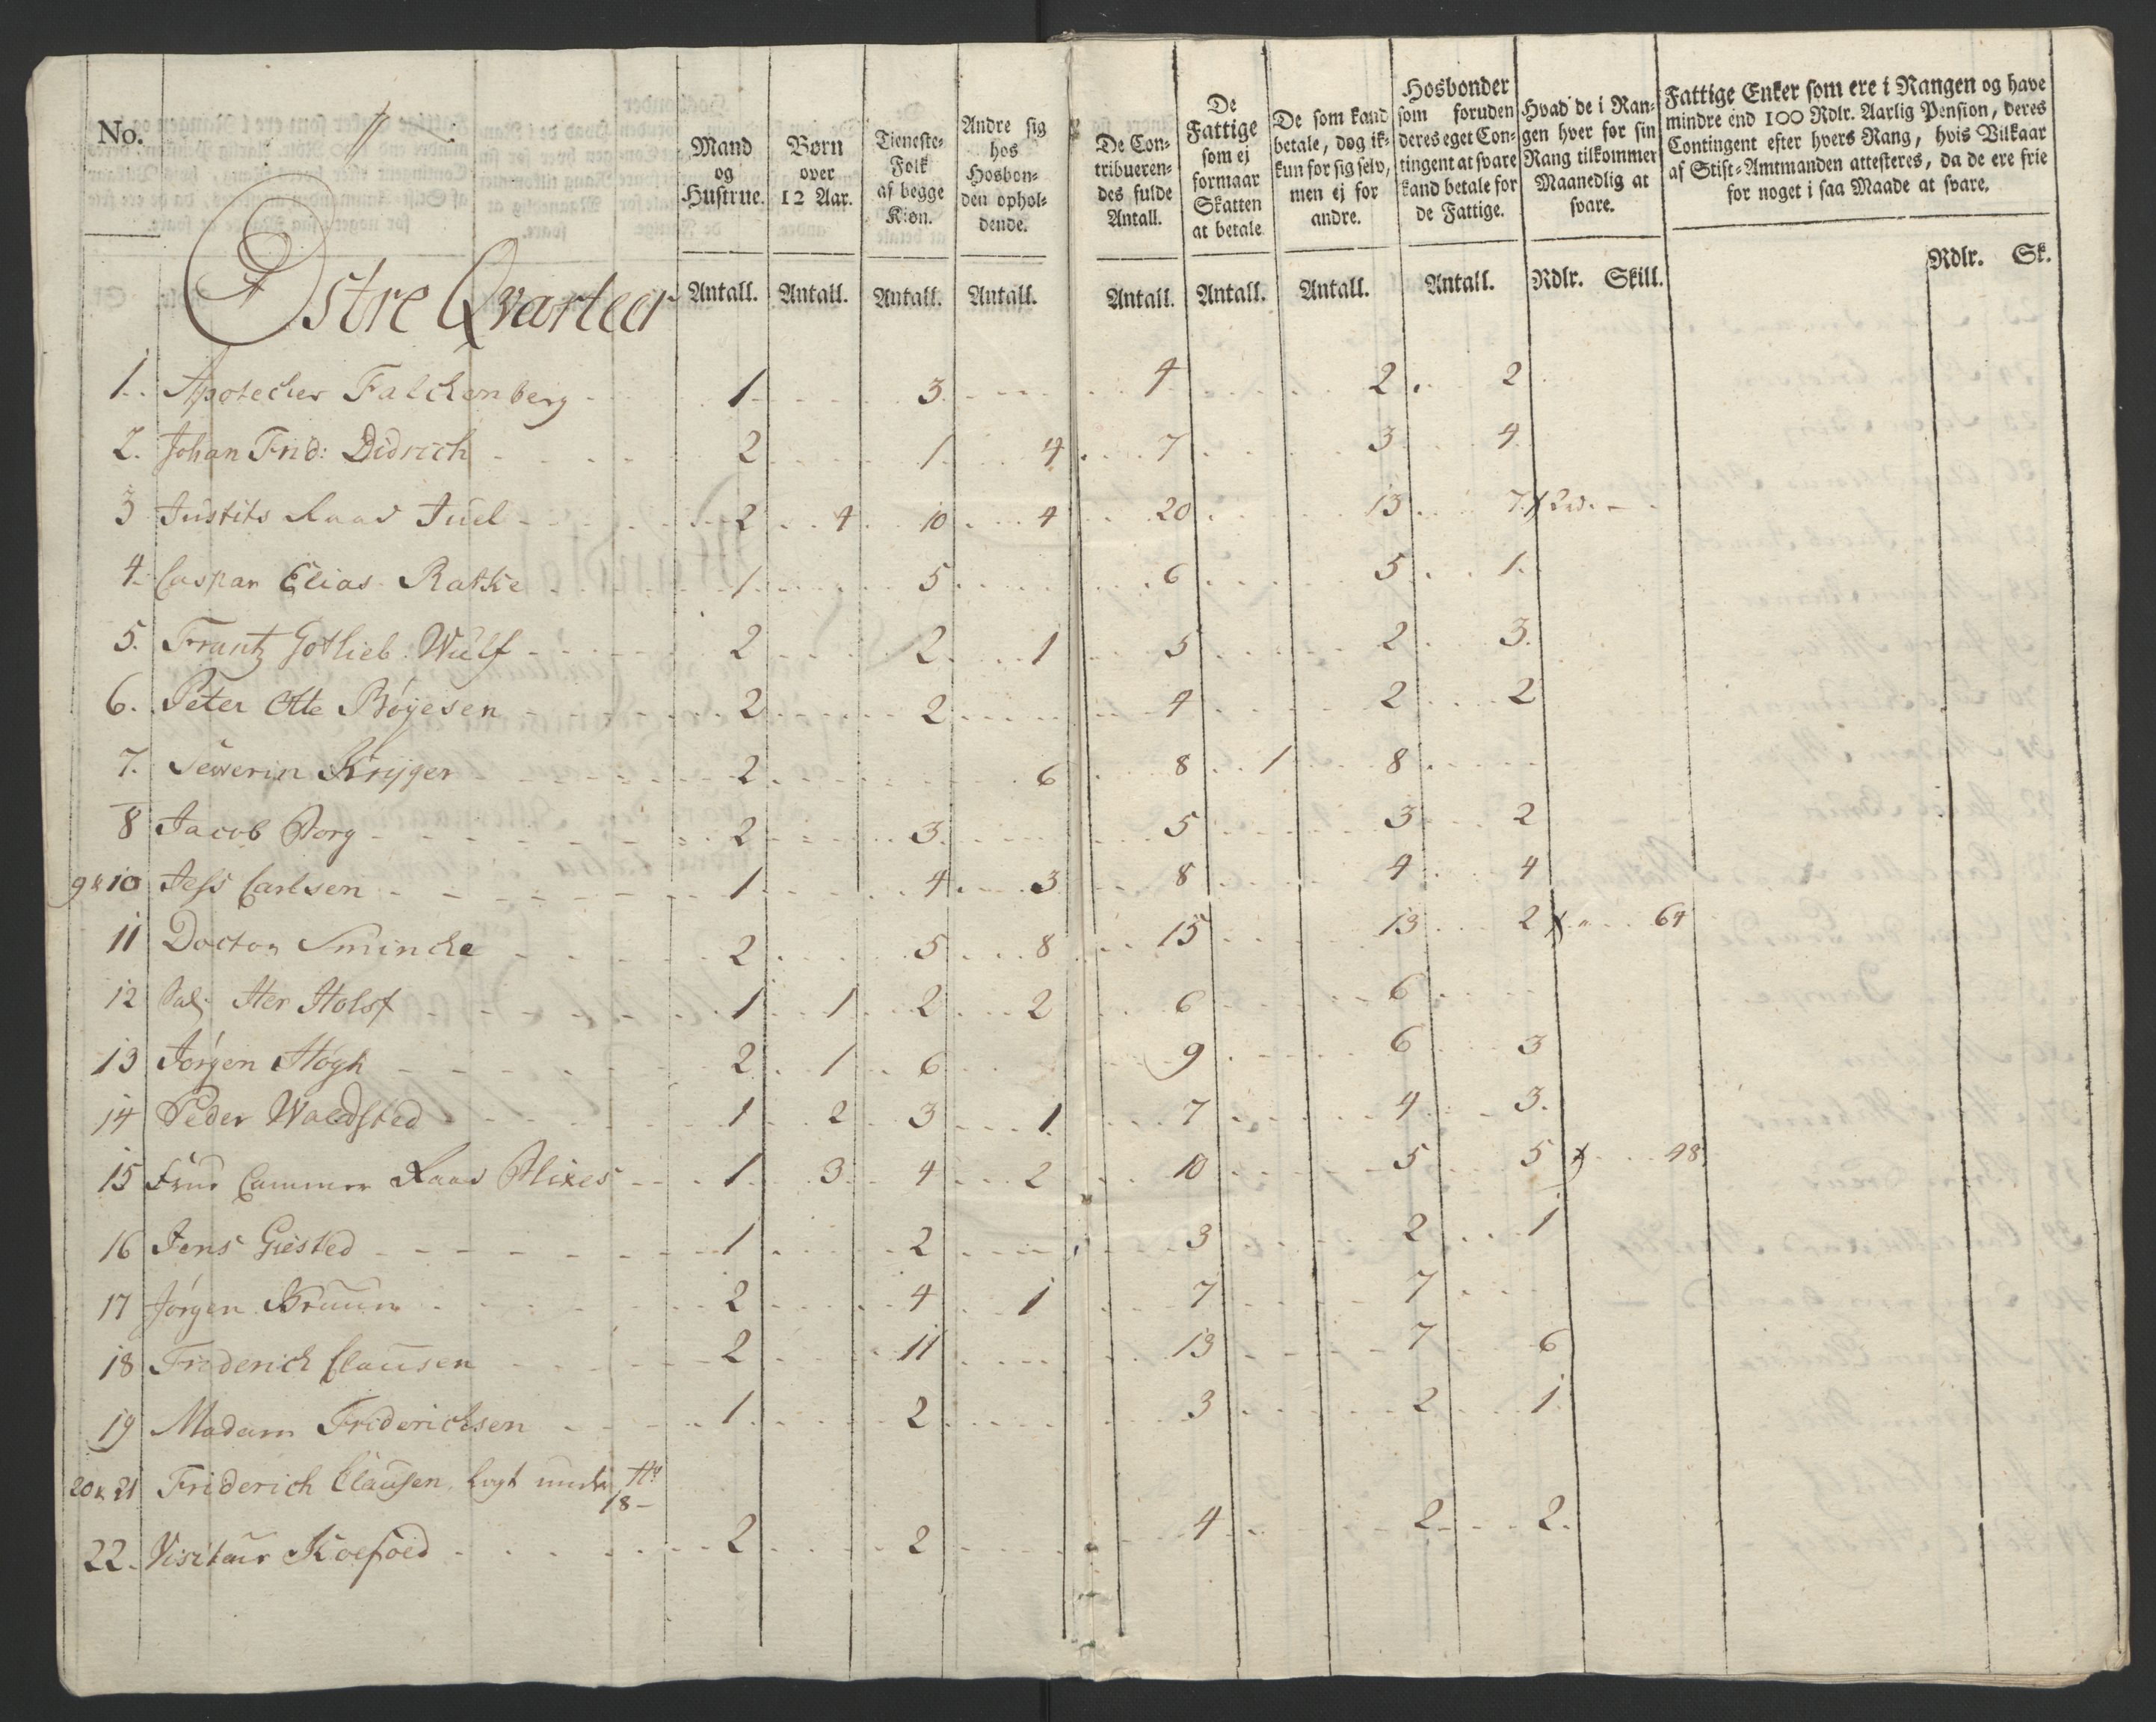 No.
Mand og Hustrue.
Børn over 12 Aar.
Tieneste-Folk af begge Kiøn.
Andre sig hos Hosbonden ophol-dende.
De Con-tribueren-des fulde Antall.
De Fattige som ej formaar Skatten at betale
De som kand betale, dog ik-kun for sig selv, men ej for andre.
Hosbonder som foruden deres eget Con-tingent at svare kand betale for de Fattige.
Hvad de i Ran-gen hver for sin Rang tilkommer Maanedlig at svare.
Fattige Enker som ere i Rangen og have mindre end 100 Rdlr. Aarlig Pension, deres Contingent efter hvers Rang, hvis Vilkaar af Stift-Amtmanden attesteres, da de ere frie for noget i saa Maade at svare.
Østre Qvarteer Antall. Antall. Antall. Antall. Antall. Antall. Antall. Antall. Rdlr. Skill. Rdlr. Sk.
1. Apotecher Falckenberg 1 3 4 2 2
2. Johan Frid: Didrich 2 1 4 7 3 4
3 Justits Raad Juel 2 4 10 4 20 13 7
4 Caspar Elias Rathke 1 5 6 5 1
5. Frantz Gotlieb Wulf 2 2 1 5 2 3
6. Peter Otte Bøyesen 2 2 4 2 2
7. Sewerin Kryger 2 6 8 1 8
8 Jacob Borg 2 3 5 3 2
9 & 10 Jess Carlsen 1 4 3 8 4 4
11 Doctor Smincke 2 5 8 15 13 2 64
12 Sal: Her Holst 1 1 2 2 6 6
13 Jørgen Høgh 2 1 6 9 6 3
14 Peder Waldsted 1 2 3 1 7 4 3
15 Frue Cammer Raad Blixes 1 3 4 2 10 5 5 48
16 Jens Giested 1 2 3 2 1
17 Jørgen Bruun 2 4 1 7 7
18 Friderich Clausen 2 11 13 7 6
19 Madam Friderichsen 1 2 3 2 1
20 & 21 Friderich Clausen, Lagt under No
18
22. Visiteur Koefoed 2 2 4 2 2